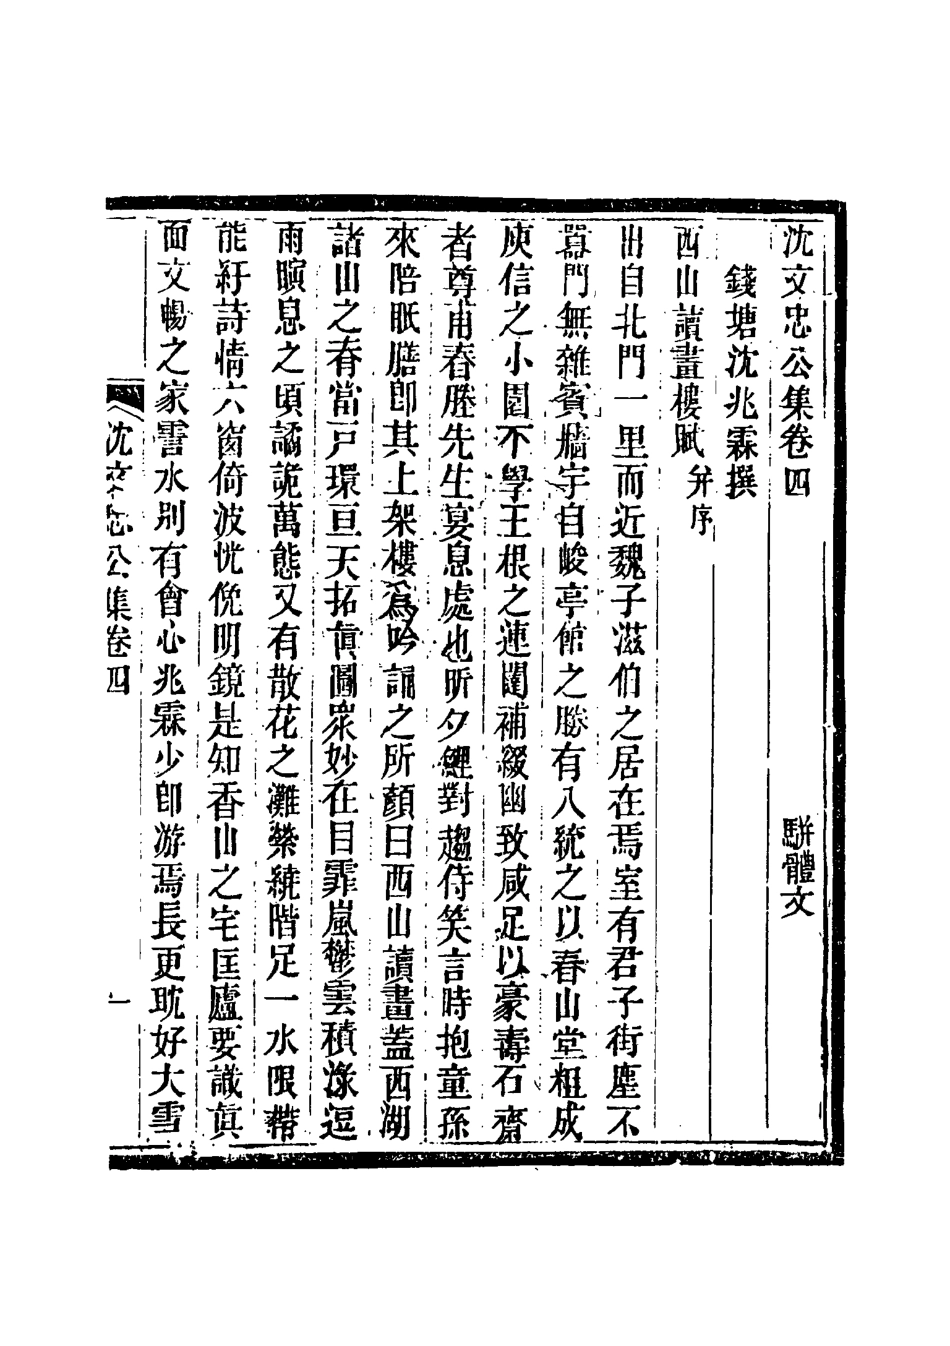 沈文忠公集卷四　駢體文
錢塘沈兆霖撰
西山讀畫樓賦 幷序
出自北門一里而近魏子滋伯之居在焉室有君子街塵不
囂門無雜賓牆宇自峻亭館之勝有八統之以春山堂粗成
庾信之小園不學王根之連闥補綴幽致咸足以豪壽石齋
者尊甫春勝先生宴息處也昕夕鯉對趨侍笑言時抱童孫
來陪眂膳卽其上架樓爲吟誦之所顏曰西山讀畫蓋西湖
諸山之脊當戸環亘天拓眞圖衆妙在目霏嵐鬱雲積淥逗
雨暝息之頃譎詭萬態又有散花之灘縈繞階足一水限帶
能紆詩情六窗倚波恍俛明鏡是知香山之宅匡廬要識眞
面文暢之家霅水別有會心兆霖少卽游焉長更耽好大雪
沈文忠公集卷四　一